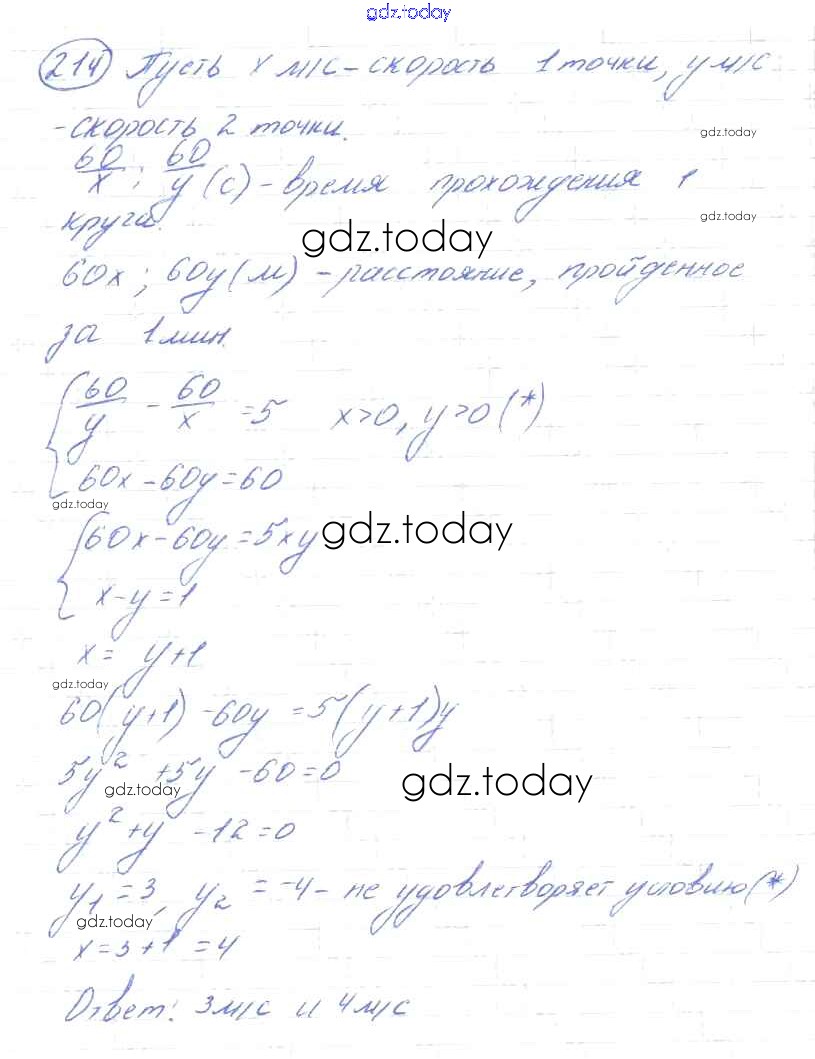 gdz.today
214 Пусть x м/с - скорость 1 точки, y м/с
- скорость 2 точки.
gdz.today
60/x ; 60/y (с) - время прохождения 1
gdz.today
круга.
gdz.today
60x ; 60y (м) - расстояние, пройденное
за 1 мин.
{ 60/y - 60/x = 5 x>0, y>0 (*)
60x - 60y = 60
gdz.today
{ 60x - 60y = 5xy
gdz.today
x - y = 1
x = y+1
gdz.today
60(y+1) - 60y = 5(y+1)y
5y² + 5y - 60 = 0
gdz.today
gdz.today
y² + y - 12 = 0
y₁ = 3, y₂ = -4 - не удовлетворяет условию (*)
gdz.today
x = 3+1 = 4
Ответ: 3 м/с и 4 м/с